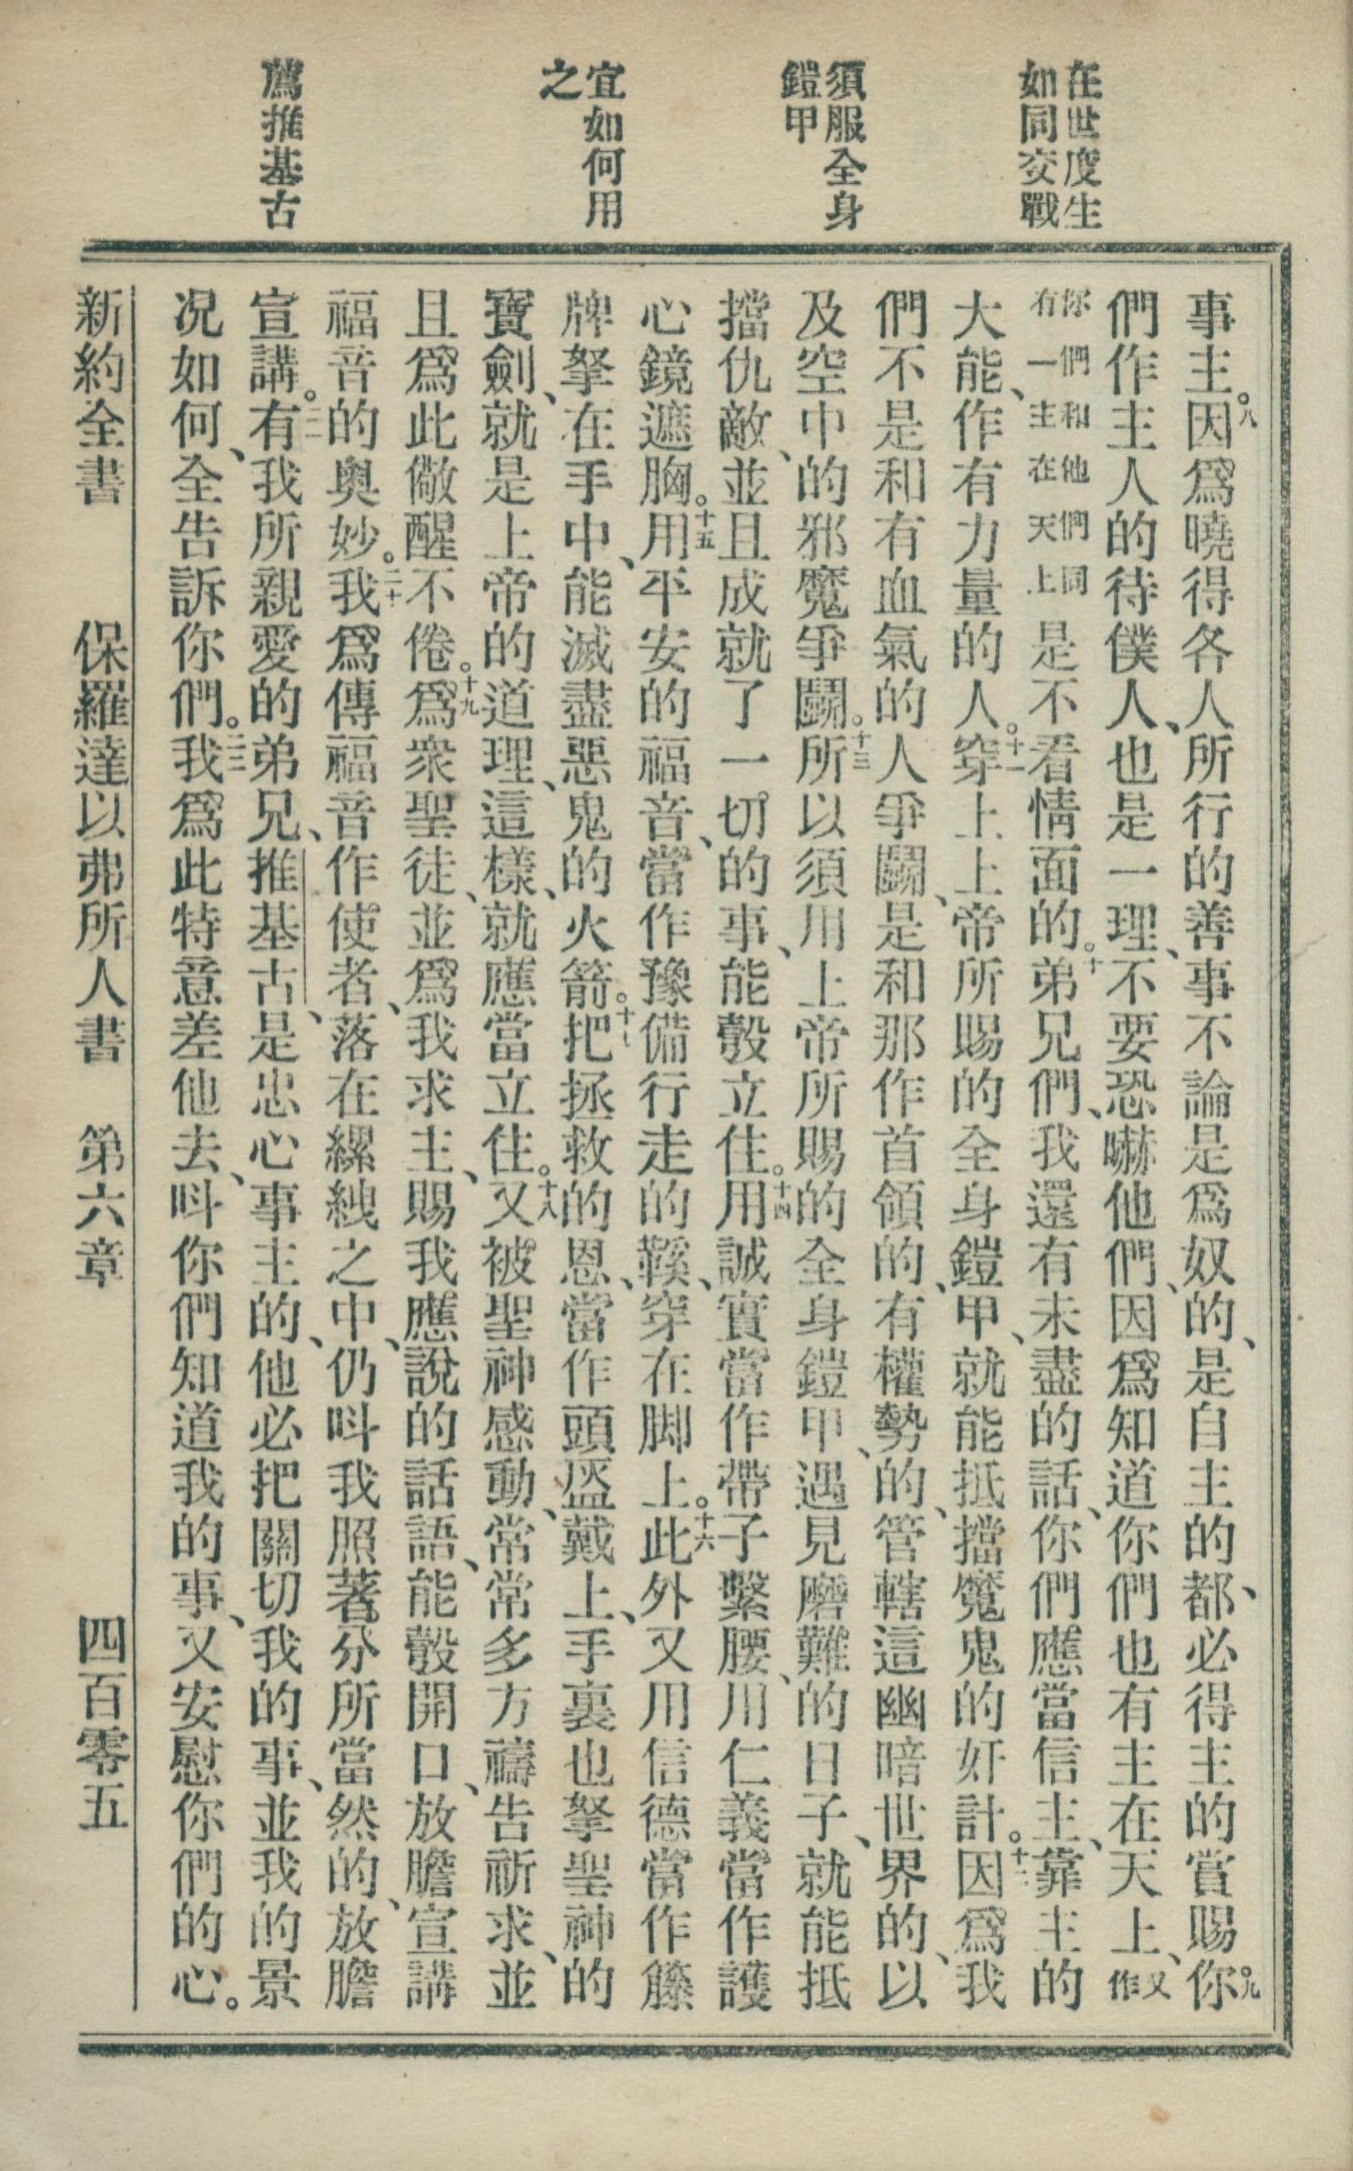 在世度生
如同交戰
須服全身
鎧甲
宜如何用
之
薦推基古
事主。八因爲曉得各人所行的善事不論是爲奴的、是自主的、都必得主的賞賜。九你
們作主人的待僕人、也是一理、不要恐嚇他們、因爲知道你們也有主在天上、又作
你們和他們同有一主在天上是不看情面的。十弟兄們、我還有未盡的話、你們應當信主、靠主的
大能、作有力量的人。十一穿上上帝所賜的全身鎧甲、就能抵擋魔鬼的奸計。十二因爲我
們不是和有血氣的人爭鬭、是和那作首領的、有權勢的、管轄這幽暗世界的、以
及空中的邪魔爭鬭。十三所以須用上帝所賜的全身鎧甲、遇見磨難的日子、就能抵
擋仇敵、並且成就了一切的事、能彀立住。十四用誠實當作帶子繫腰、用仁義當作護
心鏡遮胸。十五用平安的福音、當作豫備行走的鞵、穿在脚上。十六此外又用信德當作籐
牌拏在手中、能滅盡惡鬼的火箭。十七把拯救的恩、當作頭盔戴上、手裏也拏聖神的
寶劍、就是上帝的道理、這樣、就應當立住。十八又被聖神感動、常常多方禱告祈求、並
且爲此儆醒不倦。十九爲衆聖徒、並爲我求主、賜我應說的話語、能彀開口、放膽宣講
福音的奧妙。二十我爲傳福音作使者、落在縲絏之中、仍呌我照著分所當然的、放膽
宣講。二一有我所親愛的弟兄、推基古、是忠心事主的、他必把關切我的事、並我的景
况如何、全告訴你們。二二我爲此特意差他去、呌你們知道我的事、又安慰你們的心。
新約全書　保羅達以弗所人書　第六章　四百零五